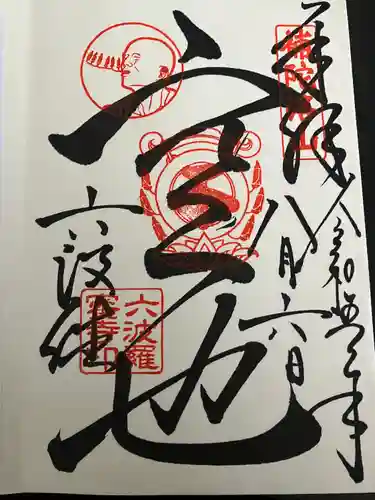 奉拝
令和年
八月六日
補陀落山
空也
六波羅
六波羅
蜜寺印